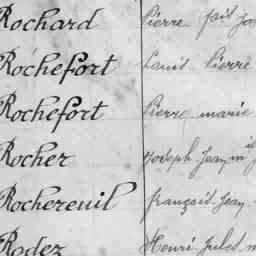 Rochard Pierre
Rochefort Louis Pierre
Rochefort Pierre marie
Rocher Joseph Jean m
Rochereuil françois Jean
Rodez Henri Jules m